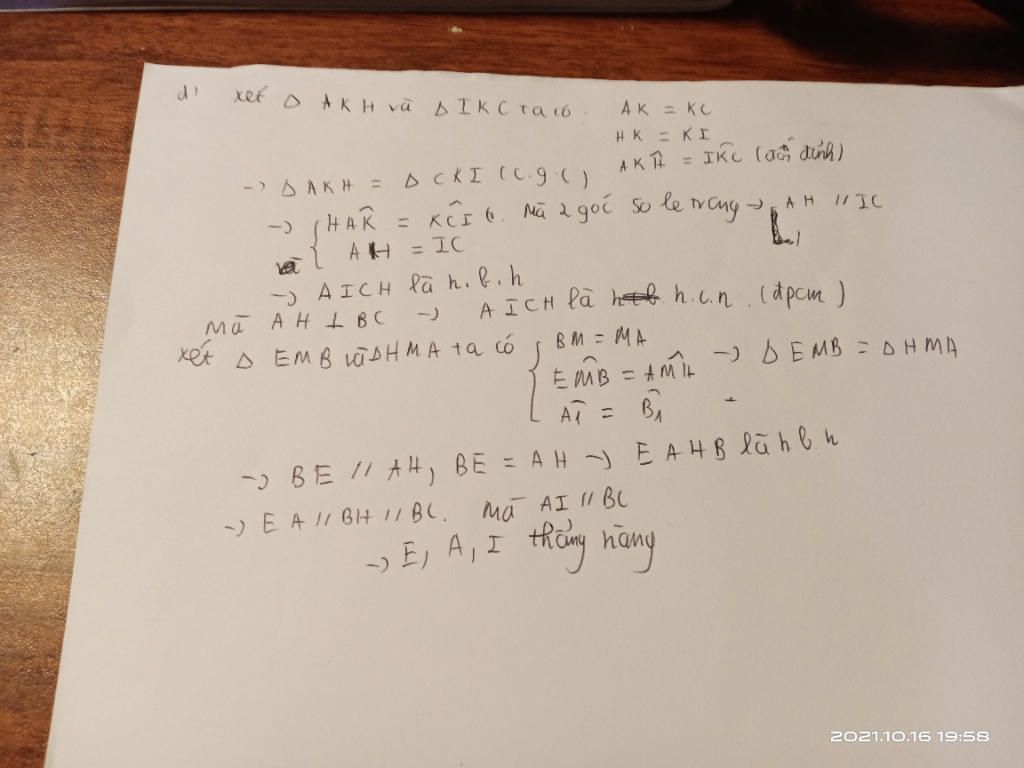 d, xét Δ AKH và Δ IKC ta có. AK = KC
HK = KI
AKĤ = IK̂C (đối đỉnh)
→ Δ AKH = Δ CKI (c.g.c)
→ { HAK̂ = KĈI. Mà 2 góc so le trong → AH // IC
và AH = IC
→ AICH là h.b.h
Mà AH ⊥ BC → AICH là h.c.n. (đpcm)
xét Δ EMB và ΔHMA ta có { BM = MA
EM̂B = AM̂H → Δ EMB = Δ HMA
Â1 = B̂1
→ BE // AH, BE = AH → EAHB là h.b.h
→ EA // BH // BC. Mà AI // BC
→ E, A, I thẳng hàng
2021.10.16 19:58